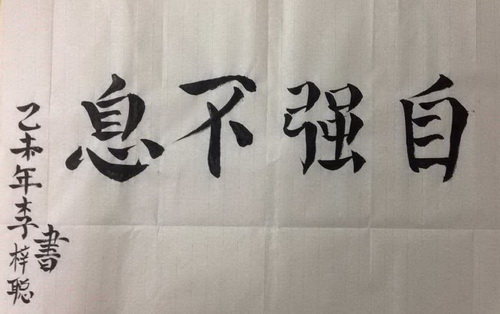 自强不息
乙未年李梓聪
書